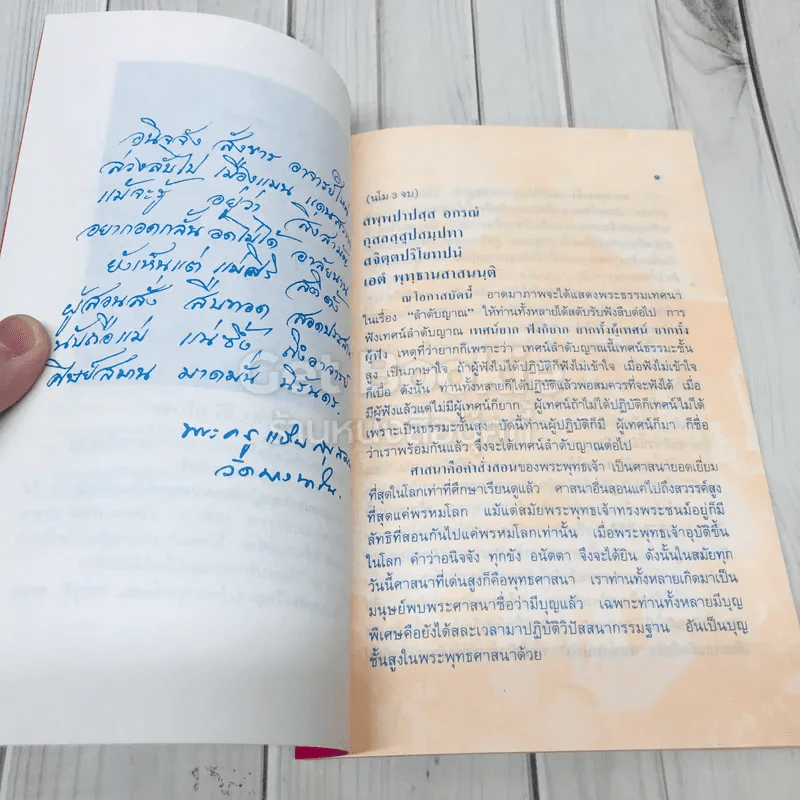 อนิจจัง สังขาร อาจารย์ใหญ่
ล่วงลับไป เมืองแมน แดน
แม้จะรู้ อยู่ว่า
อยากอดกลั้น อดไม่ได้ อาลัย
ยังเห็นแต่ แม่สิริ
ผู้สอนสั่ง สืบทอด
นับถือแม่ แน่ซึ้ง ถึงอาจารย์
ศิษย์สมาน มาดมั่น นิรันดร.
พระครู
วัด
๑
(นโม 3 จบ)
สพฺพปาปสฺส อกรณํ
กุสลสฺสูปสมฺปทา
สจิตฺตปริโยทปนํ
เอตํ พุทฺธานสาสนนฺติ
ณ โอกาสบัดนี้ อาตมาภาพจะได้แสดงพระธรรมเทศนา
ในเรื่อง “ลำดับญาณ” ให้ท่านทั้งหลายได้สดับรับฟังสืบต่อไป การ
ฟังเทศน์ลำดับญาณ เทศน์ยาก ฟังก็ยาก ยากทั้งผู้เทศน์ ยากทั้ง
ผู้ฟัง เหตุที่ว่ายากก็เพราะว่า เทศน์ลำดับญาณนี้เทศน์ธรรมะชั้น
สูง เป็นภาษาใจ ถ้าผู้ฟังไม่ได้ปฏิบัติก็ฟังไม่เข้าใจ เมื่อฟังไม่เข้าใจ
ก็เบื่อ ดังนั้น ท่านทั้งหลายก็ได้ปฏิบัติแล้วพอสมควรที่จะฟังได้ เมื่อ
มีผู้ฟังแล้วแต่ไม่มีผู้เทศน์ก็ยาก ผู้เทศน์ถ้าไม่ได้ปฏิบัติก็เทศน์ไม่ได้
เพราะเป็นธรรมะชั้นสูง บัดนี้ท่านผู้ปฏิบัติก็มี ผู้เทศน์ก็มา ก็ชื่อ
ว่าเราพร้อมกันแล้ว จึงจะได้เทศน์ลำดับญาณต่อไป
ศาสนาคือคำสั่งสอนของพระพุทธเจ้า เป็นศาสนายอดเยี่ยม
ที่สุดในโลกเท่าที่ศึกษาเรียนดูแล้ว ศาสนาอื่นสอนแค่ไปถึงสวรรค์สูง
ที่สุดแค่พรหมโลก แม้แต่สมัยพระพุทธเจ้าทรงพระชนม์อยู่ก็มี
ลัทธิที่สอนกันไปแค่พรหมโลกเท่านั้น เมื่อพระพุทธเจ้าอุบัติขึ้น
ในโลก คำว่าอนิจจัง ทุกขัง อนัตตา จึงจะได้ยิน ดังนั้นในสมัยทุก
วันนี้ศาสนาที่เด่นสูงก็คือพุทธศาสนา เราท่านทั้งหลายเกิดมาเป็น
มนุษย์พบพระศาสนาชื่อว่ามีบุญแล้ว เฉพาะท่านทั้งหลายมีบุญ
พิเศษคือยังได้สละเวลามาปฏิบัติวิปัสสนากรรมฐาน อันเป็นบุญ
ชั้นสูงในพระพุทธศาสนาด้วย